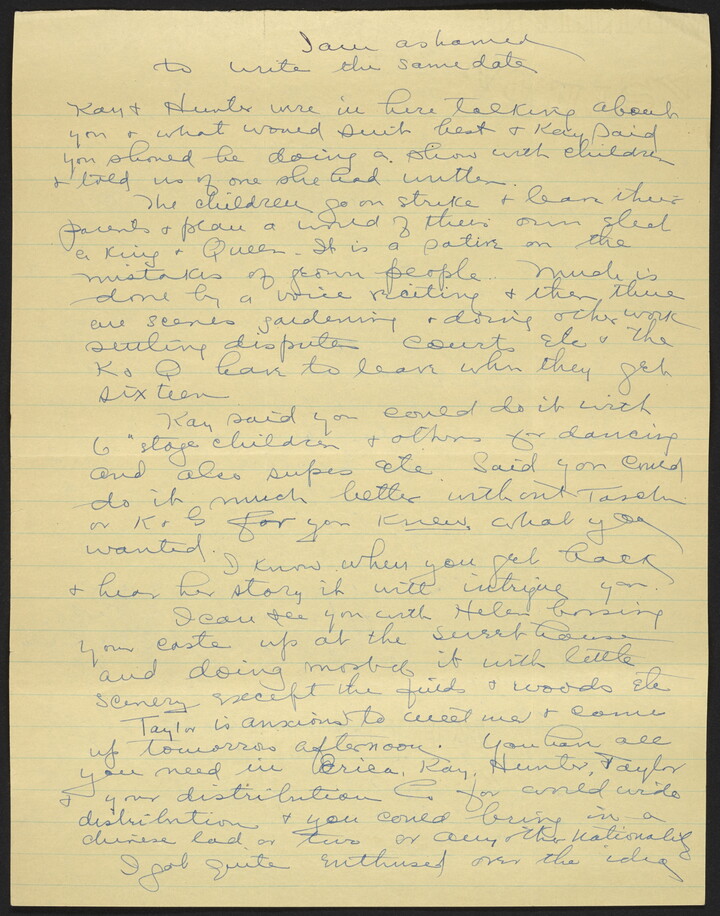 I am ashamed
to write the same date
Kay & Hunter were in here talking about
you & what would suit best & Kay said
you should be doing a show with children
& told us of one she had written.
The children go on strike & leave their
parents & plan a world of their own elect
a King & Queen. It is a satire on the
mistakes of grown people. Much is
done by a voice reciting & then there
are scenes gardening & doing other work
settling disputes courts etc & the
K & Q have to leave when they get
sixteen
Kay said you could do it with
6 "stage children & others for dancing
and also supes etc. Said you could
do it much better without
or K & S for you knew what you
wanted.
I know when you get back
& hear her story it will intrigue you.
I can see you with Helen bossing
your caste up at the sweet house
and doing most of it with little
scenery except the fields & woods etc
Taylor is anxious to meet me & come
up tomorrow afternoon. You have all
you need in Erica, Kay, Hunter, Taylor
& your distribution Co for world wide
distribution & you could bring in a
chinese lad or two or any other nationality
I got quite enthused over the idea